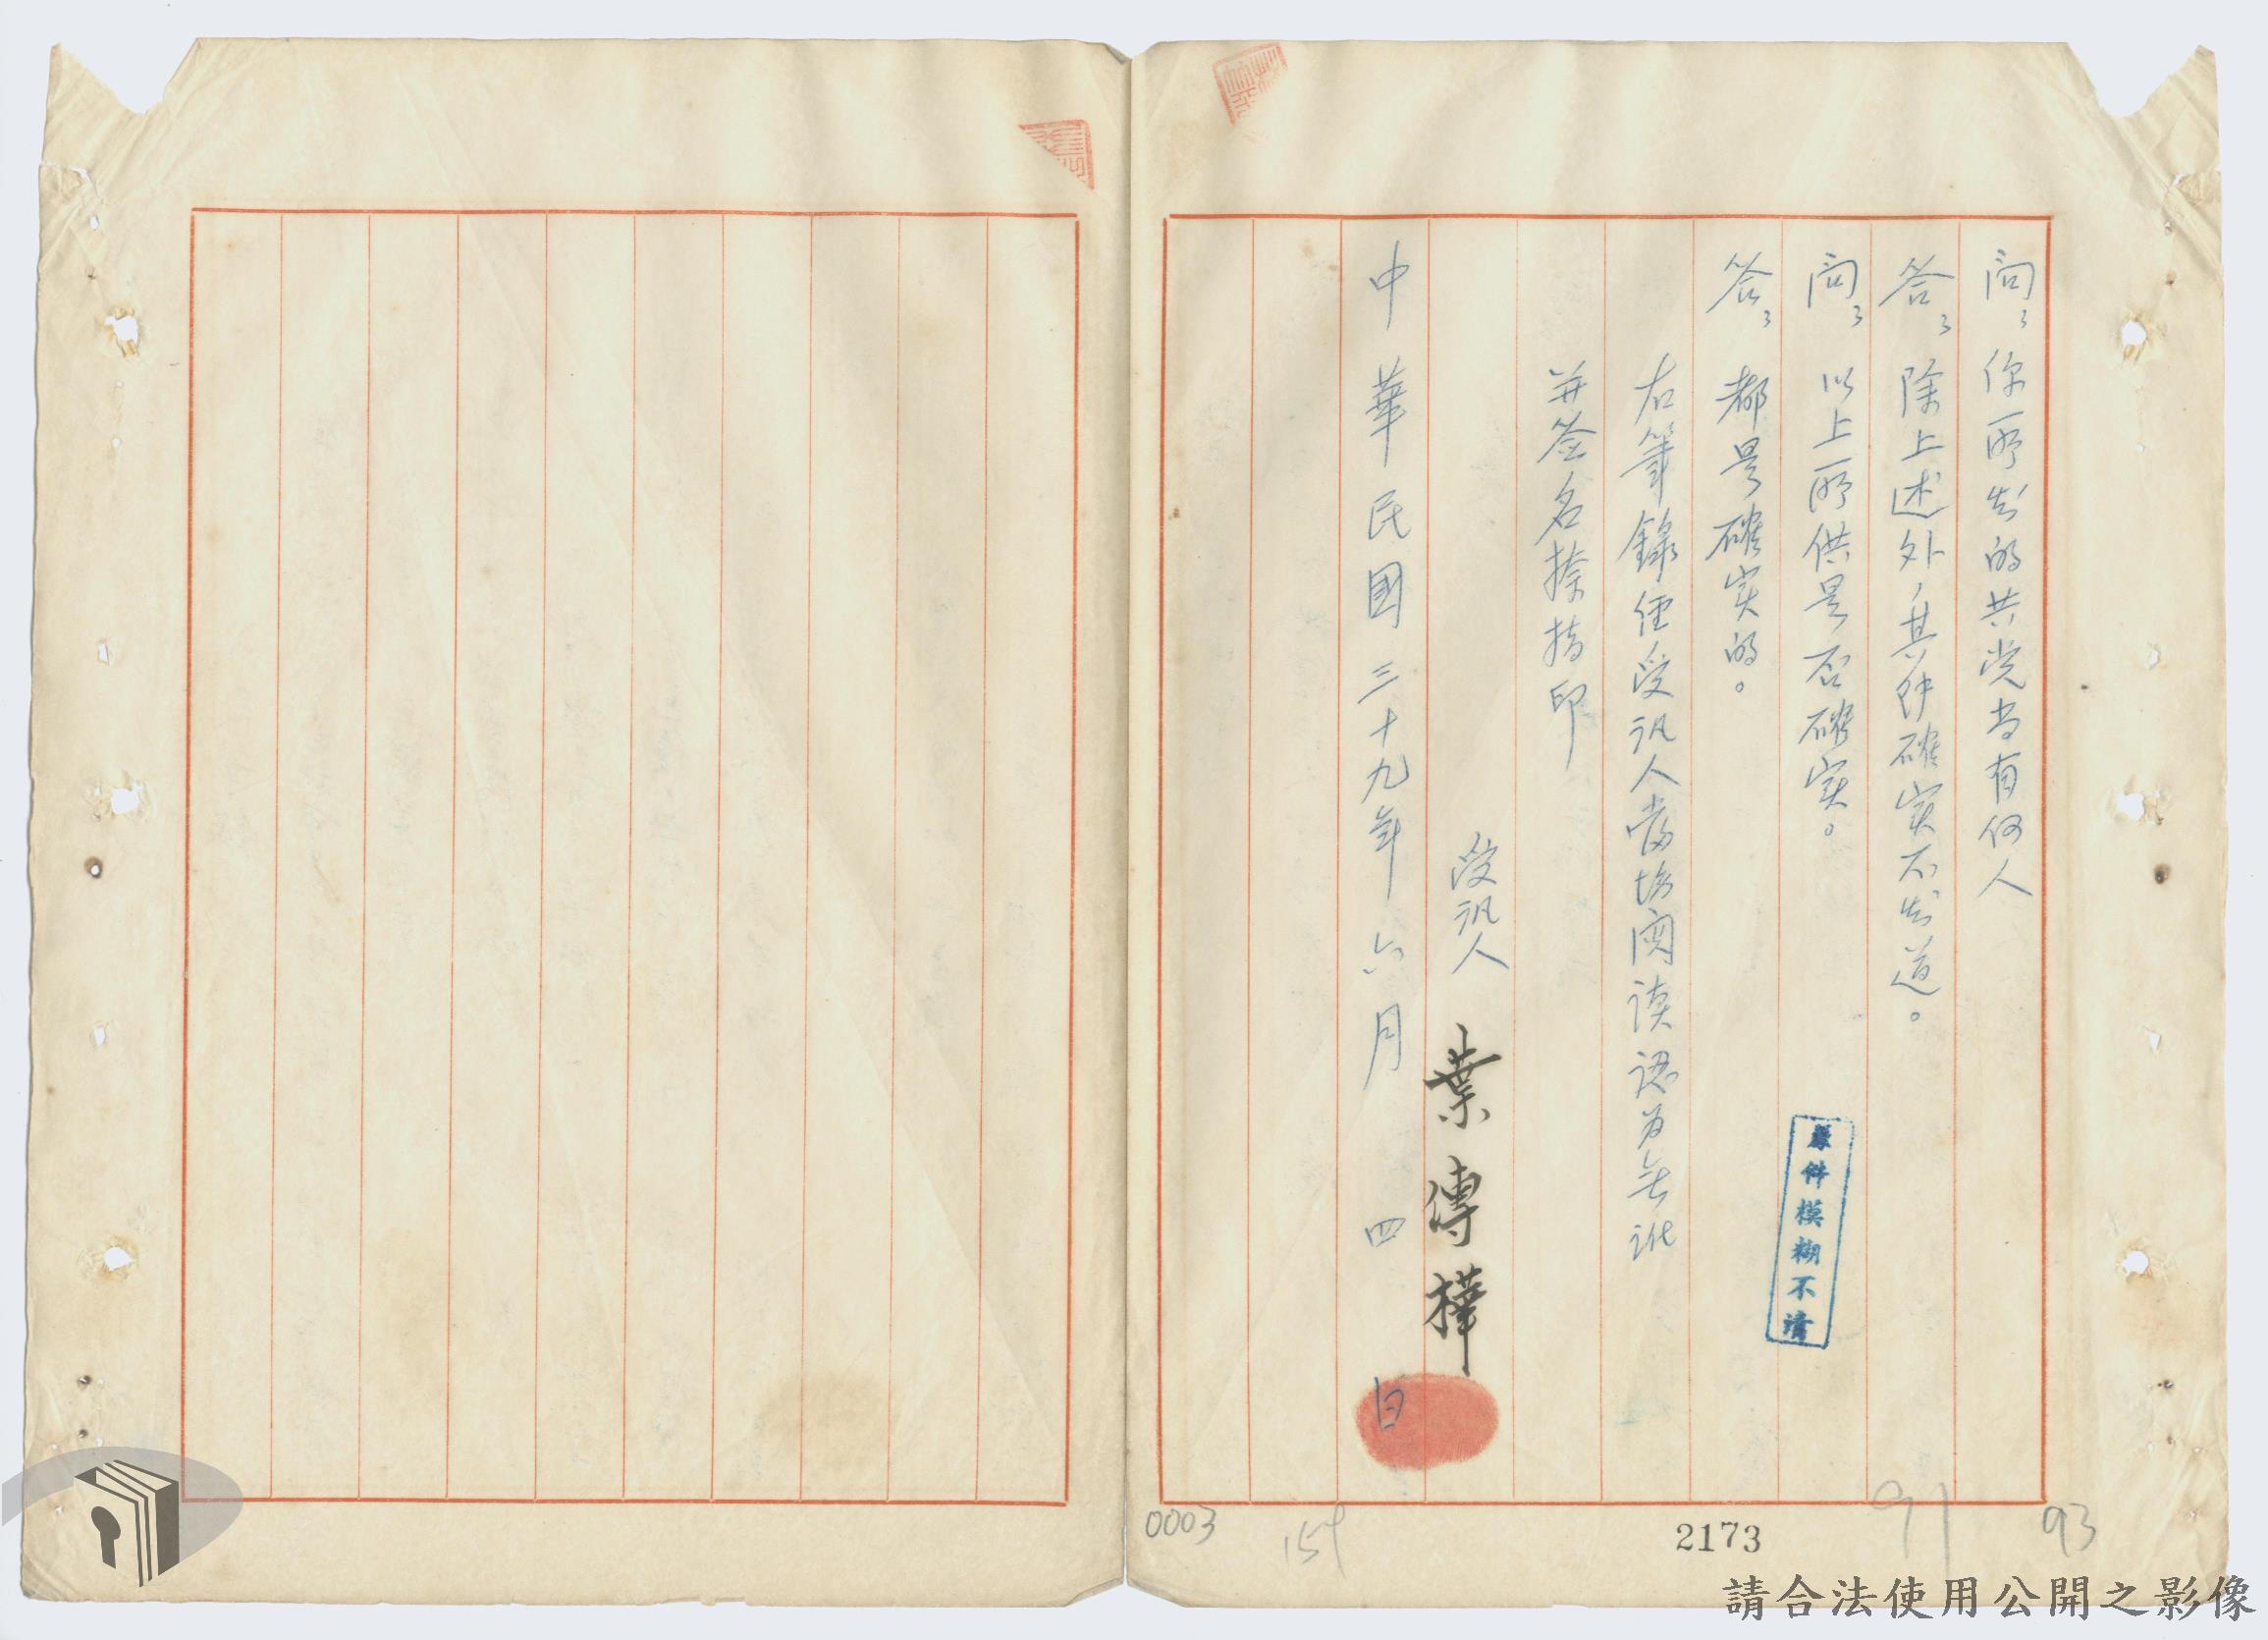 问：你所知的共党尚有何人
答：除上述外，其他確实不知道。
问：以上所供是否確实。
答：都是確实的。
右筆錄経受訊人當場阅读認为無訛
并签名捺指印
受訊人 葉傳樺
中華民國三十九年六月四日
原件模糊不清
0003
159
2173
91
93
請合法使用公開之影像